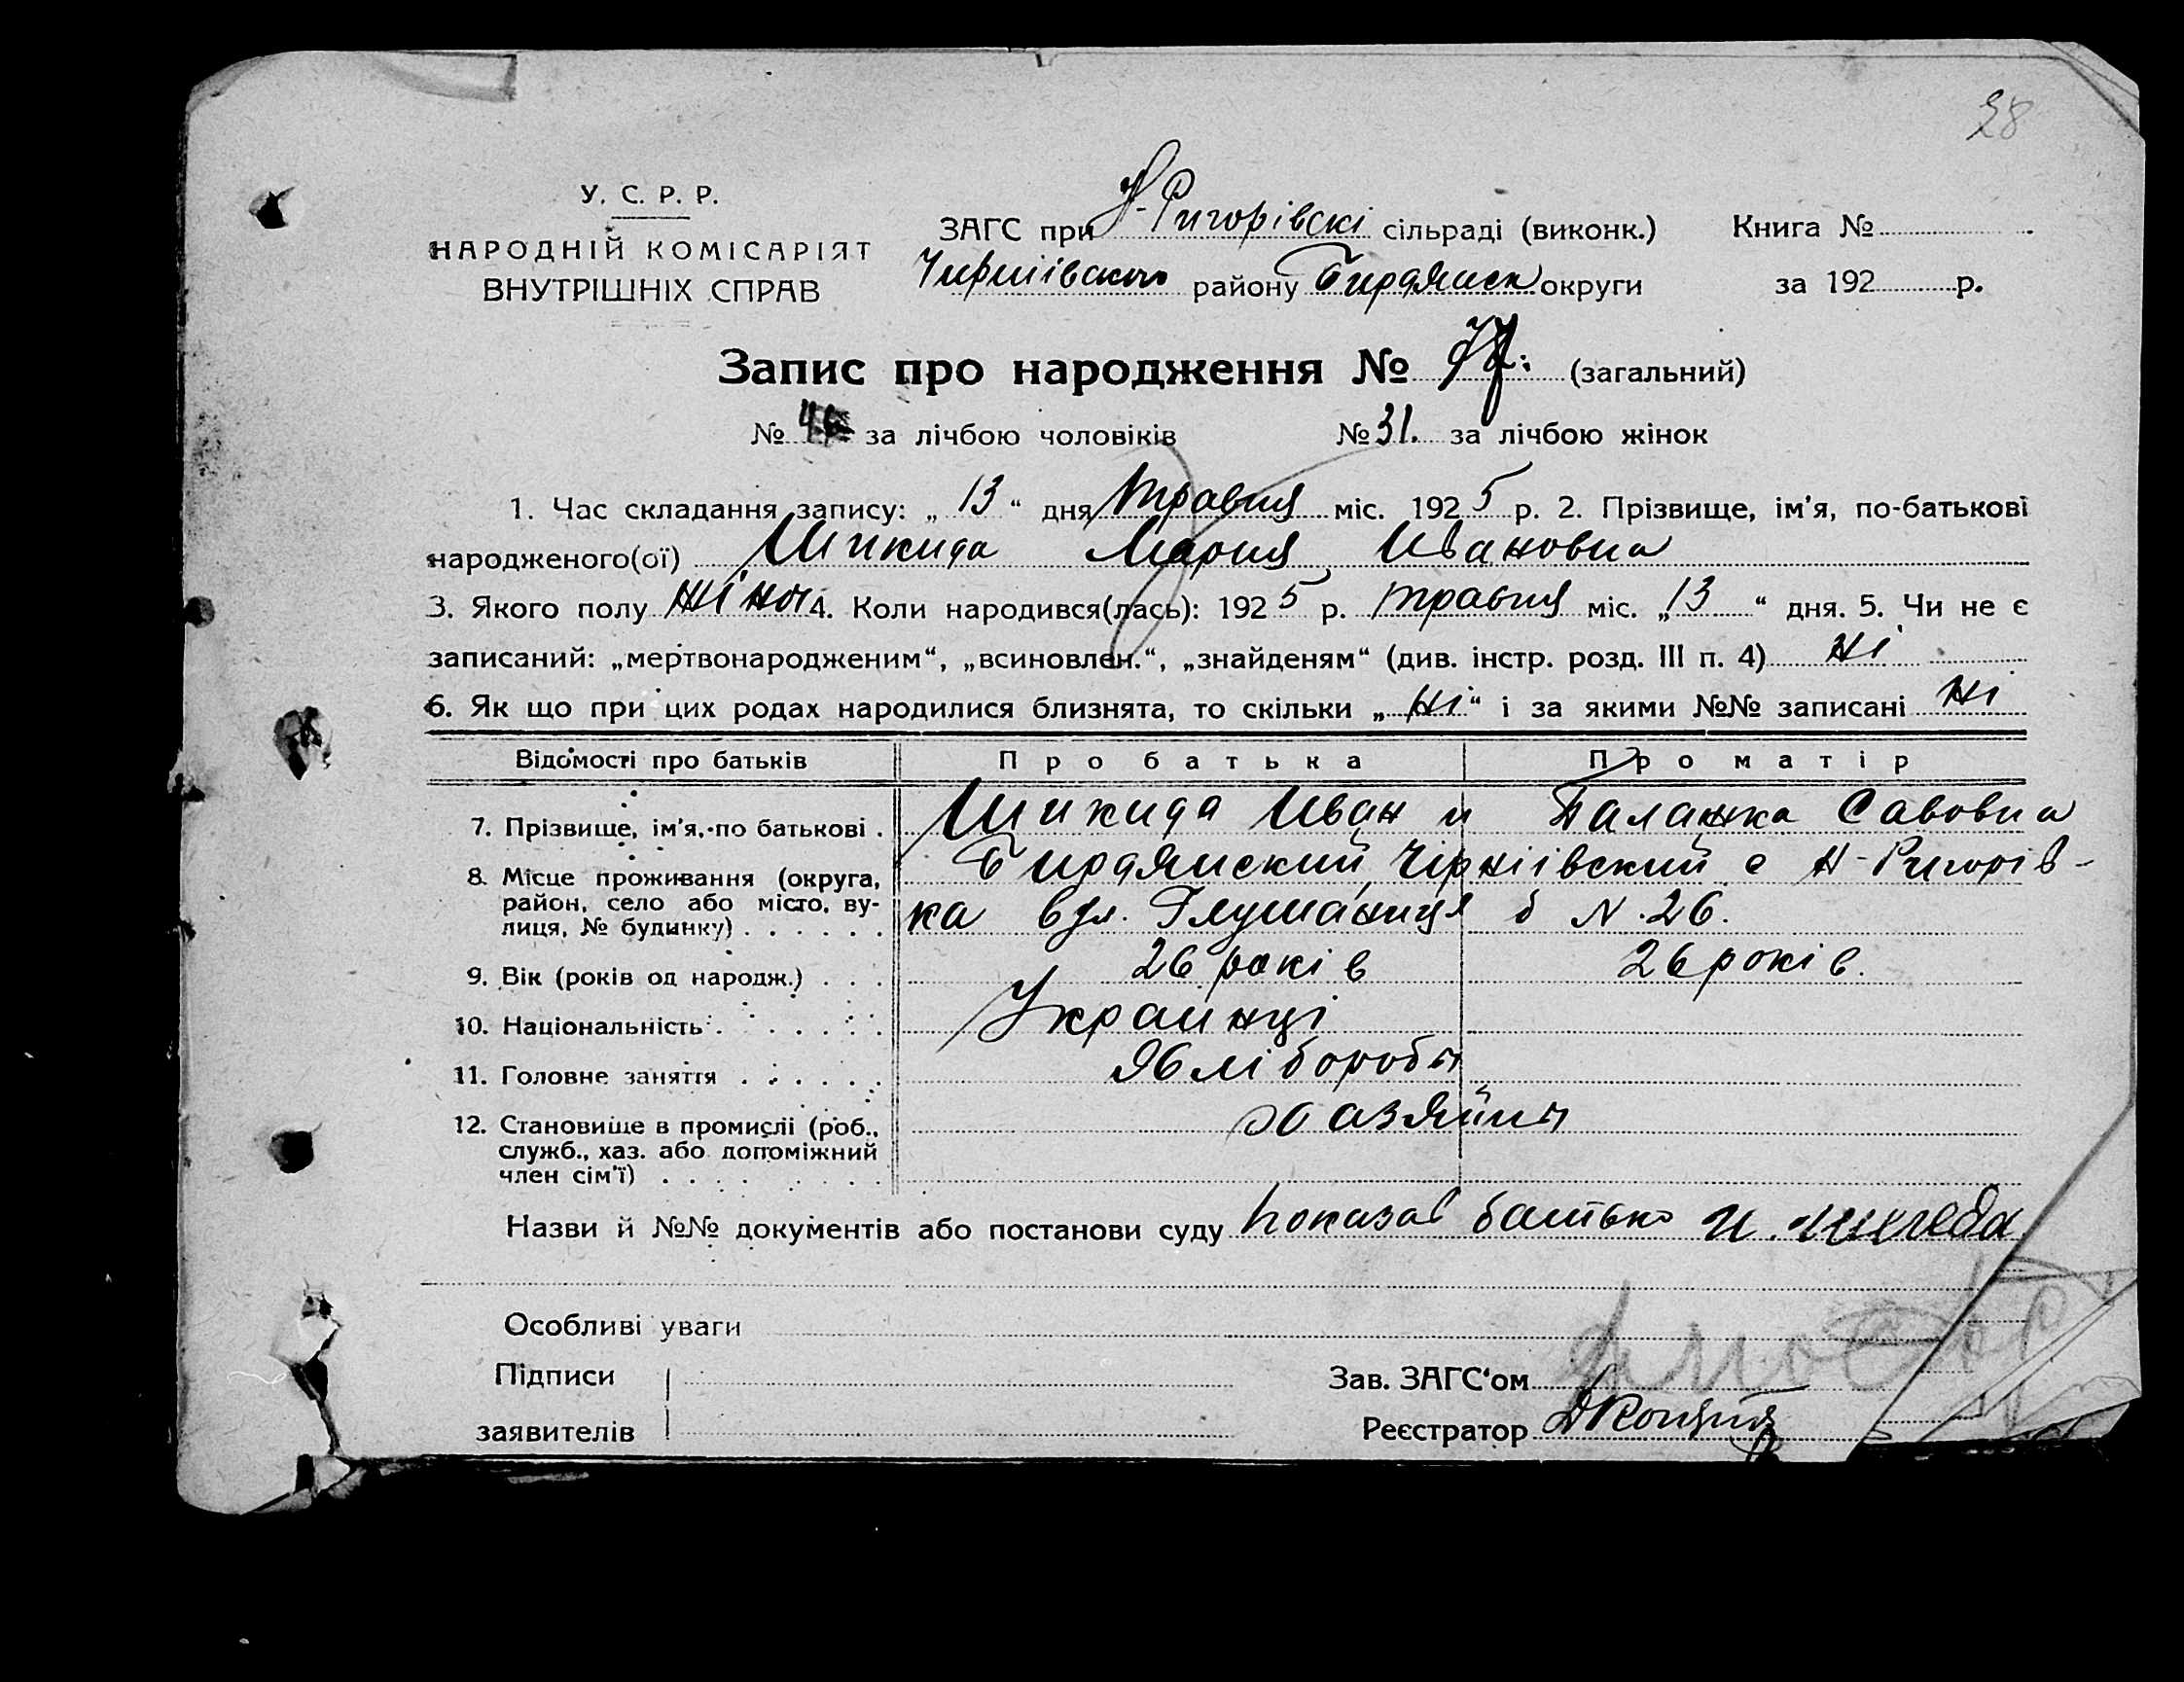 28
У. С. Р. Р.
НАРОДНІЙ КОМІСАРІЯТ
ВНУТРІШНІХ СПРАВ
ЗАГС при Н-Ригорівскі сільраді (виконк.) Книга №
району Бирдянск округи за 192 р.
Запис про народження № 77. (загальний)
№ 46 за лічбою чоловіків № 31. за лічбою жінок
1. Час складання запису: „ 13 “ дня травня міс. 1925 р. 2. Прізвище, ім’я, по-батькові
народженого(ої) Шикида Мария Ивановна
3. Якого полу жіноч 4. Коли народився(лась): 1925 р. травня міс. „13“ дня. 5. Чи не є
записаний: „мертвонародженим“, „всиновлен.“, „знайденям“ (див. інстр. розд. III п. 4) ні
6. Як що при цих родах народилися близнята, то скільки „ні“ і за якими №№ записані ні
Відомості про батьків Про батька Про матір
7. Прізвище, ім’я, по батькові . Шикида Иван и Палажка Савовна
8. Місце проживання (округа, Бирдянский Чірніівский с Н-Ригорів-
район, село або місто, ву- ка вул. Глушаниця б N. 26.
лиця, № будынку) . . . . . .
9. Вік (років од народж.) . . . 26 років 26 років.
10. Національність . . . . . . Украинці
11. Головне заняття . . . . . . Хблібороби
12. Становище в промислі (роб., Хазяйни
служб., хаз. або допоміжний
член сім’ї) . . . . . . . .
Назви й №№ документів або постанови суду показав батько И. Шикеда
Особливі уваги
Підписи Зав. ЗАГС‘ом
заявителів Реєстратор